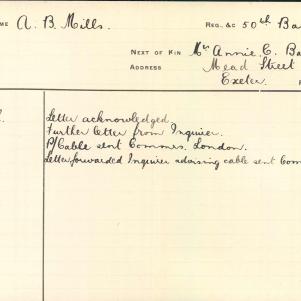 ME A. B. Mills. REG. &C 50th Ba
NEXT OF KIN Mrs Annie C. Ba
ADDRESS Mead Street
Exeter.
Letter acknowledged.
Further letter from Inquirer.
P/Cable sent Commrs. London.
Letter forwarded Inquirer advising cable sent Com